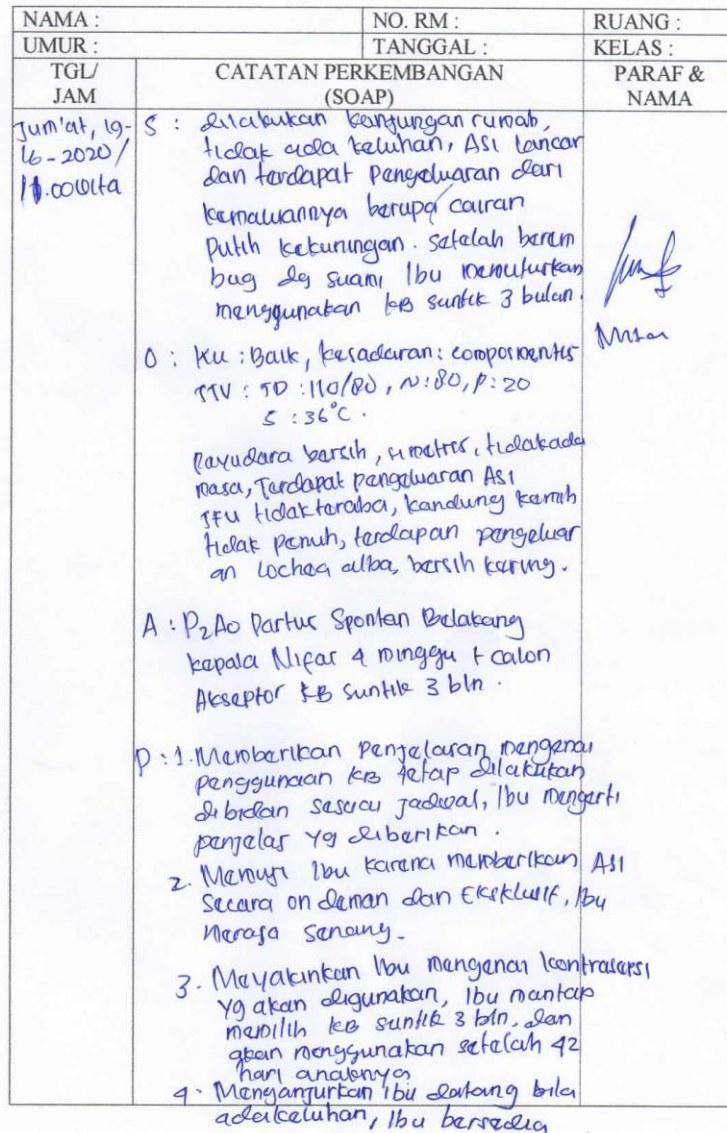 NAMA :
NO. RM :
RUANG :
UMUR :
TANGGAL :
KELAS :
TGL/
JAM
CATATAN PERKEMBANGAN
(SOAP)
PARAF &
NAMA
Jum'at, 19-
6-2020/
11.00 wita
S : dilakukan kunjungan rumah,
tidak ada keluhan, ASI lancar
dan terdapat pengeluaran dari
kemaluannya berupa cairan
putih kekuningan. setelah berem
bug dg suami Ibu memutuskan
menggunakan KB suntik 3 bulan.
O : KU : Baik, kesadaran : composmentis
TTV : TD : 110/80, N : 80, P : 20
S : 36°C.
Payudara bersih, simetris, tidak ada
masa, Terdapat pengeluaran ASI
TFU tidak teraba, kandung kemih
tidak penuh, terdapan pengeluar
an lochea alba, bersih kering.
A : P2A0 Partus Spontan Belakang
kepala Nifas 4 minggu + calon
Akseptor KB suntik 3 bln.
P : 1. Memberikan penjelasan mengenai
penggunaan KB tetap dilakukan
dibidan sesuai jadwal, Ibu mengerti
penjelas yg diberikan.
2. Memuji Ibu karena memberikan ASI
secara on deman dan Eksklusif, Ibu
merasa senang.
3. Meyakinkan Ibu mengenai kontrasepsi
yg akan digunakan, Ibu mantap
memilih KB suntik 3 bln, dan
akan menggunakan setelah 42
hari anaknya
4. Menganjurkan Ibu datang bila
ada keluhan, Ibu bersedia